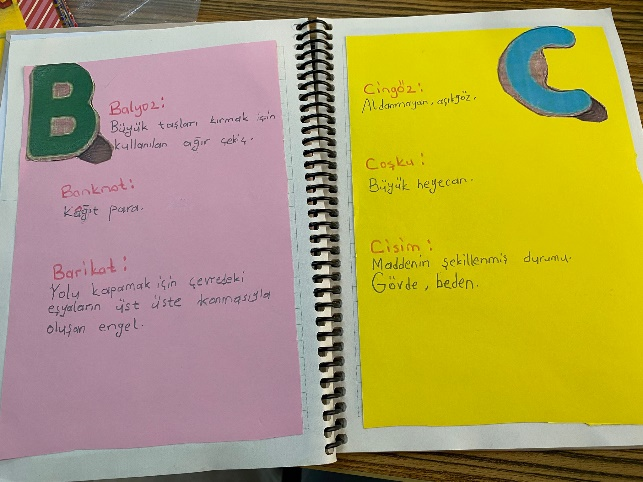 B
Balyoz:
Büyük taşları kırmak için
kullanılan ağır çekiç.
Banknot:
Kağıt para.
Barikat:
Yolu kapamak için çevredeki
eşyaların üst üste konmasıyla
oluşan engel.
C
Cingöz:
Aldanmayan, açıkgöz.
Coşku:
Büyük heyecan.
Cisim:
Maddenin şekillenmiş durumu.
Gövde, beden.